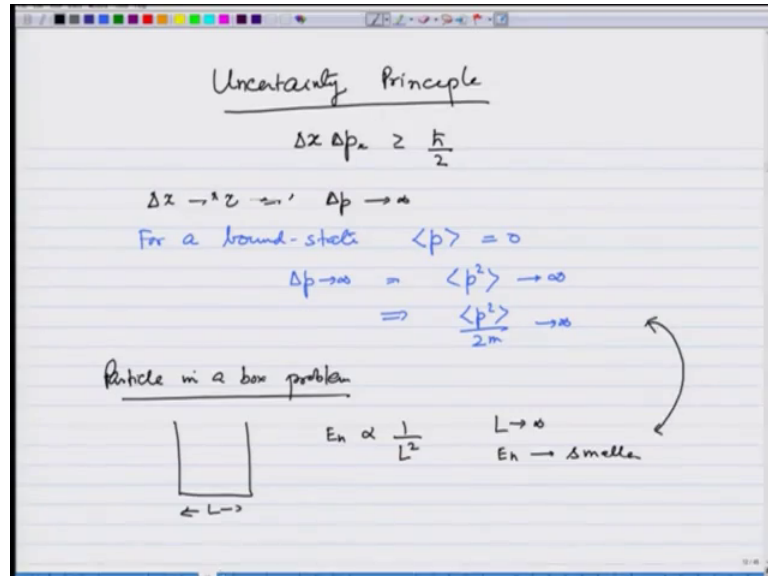 Uncertainty Principle
Δx Δpₓ ≥ ħ/2
Δx → Δp → ∞
For a bound-state <p> = 0
Δp→∞ = <p²> → ∞
⇒ <p²>/2m → ∞
Particle in a box problem
Eₙ ∝ 1/L² L → ∞
Eₙ → smaller
← L →